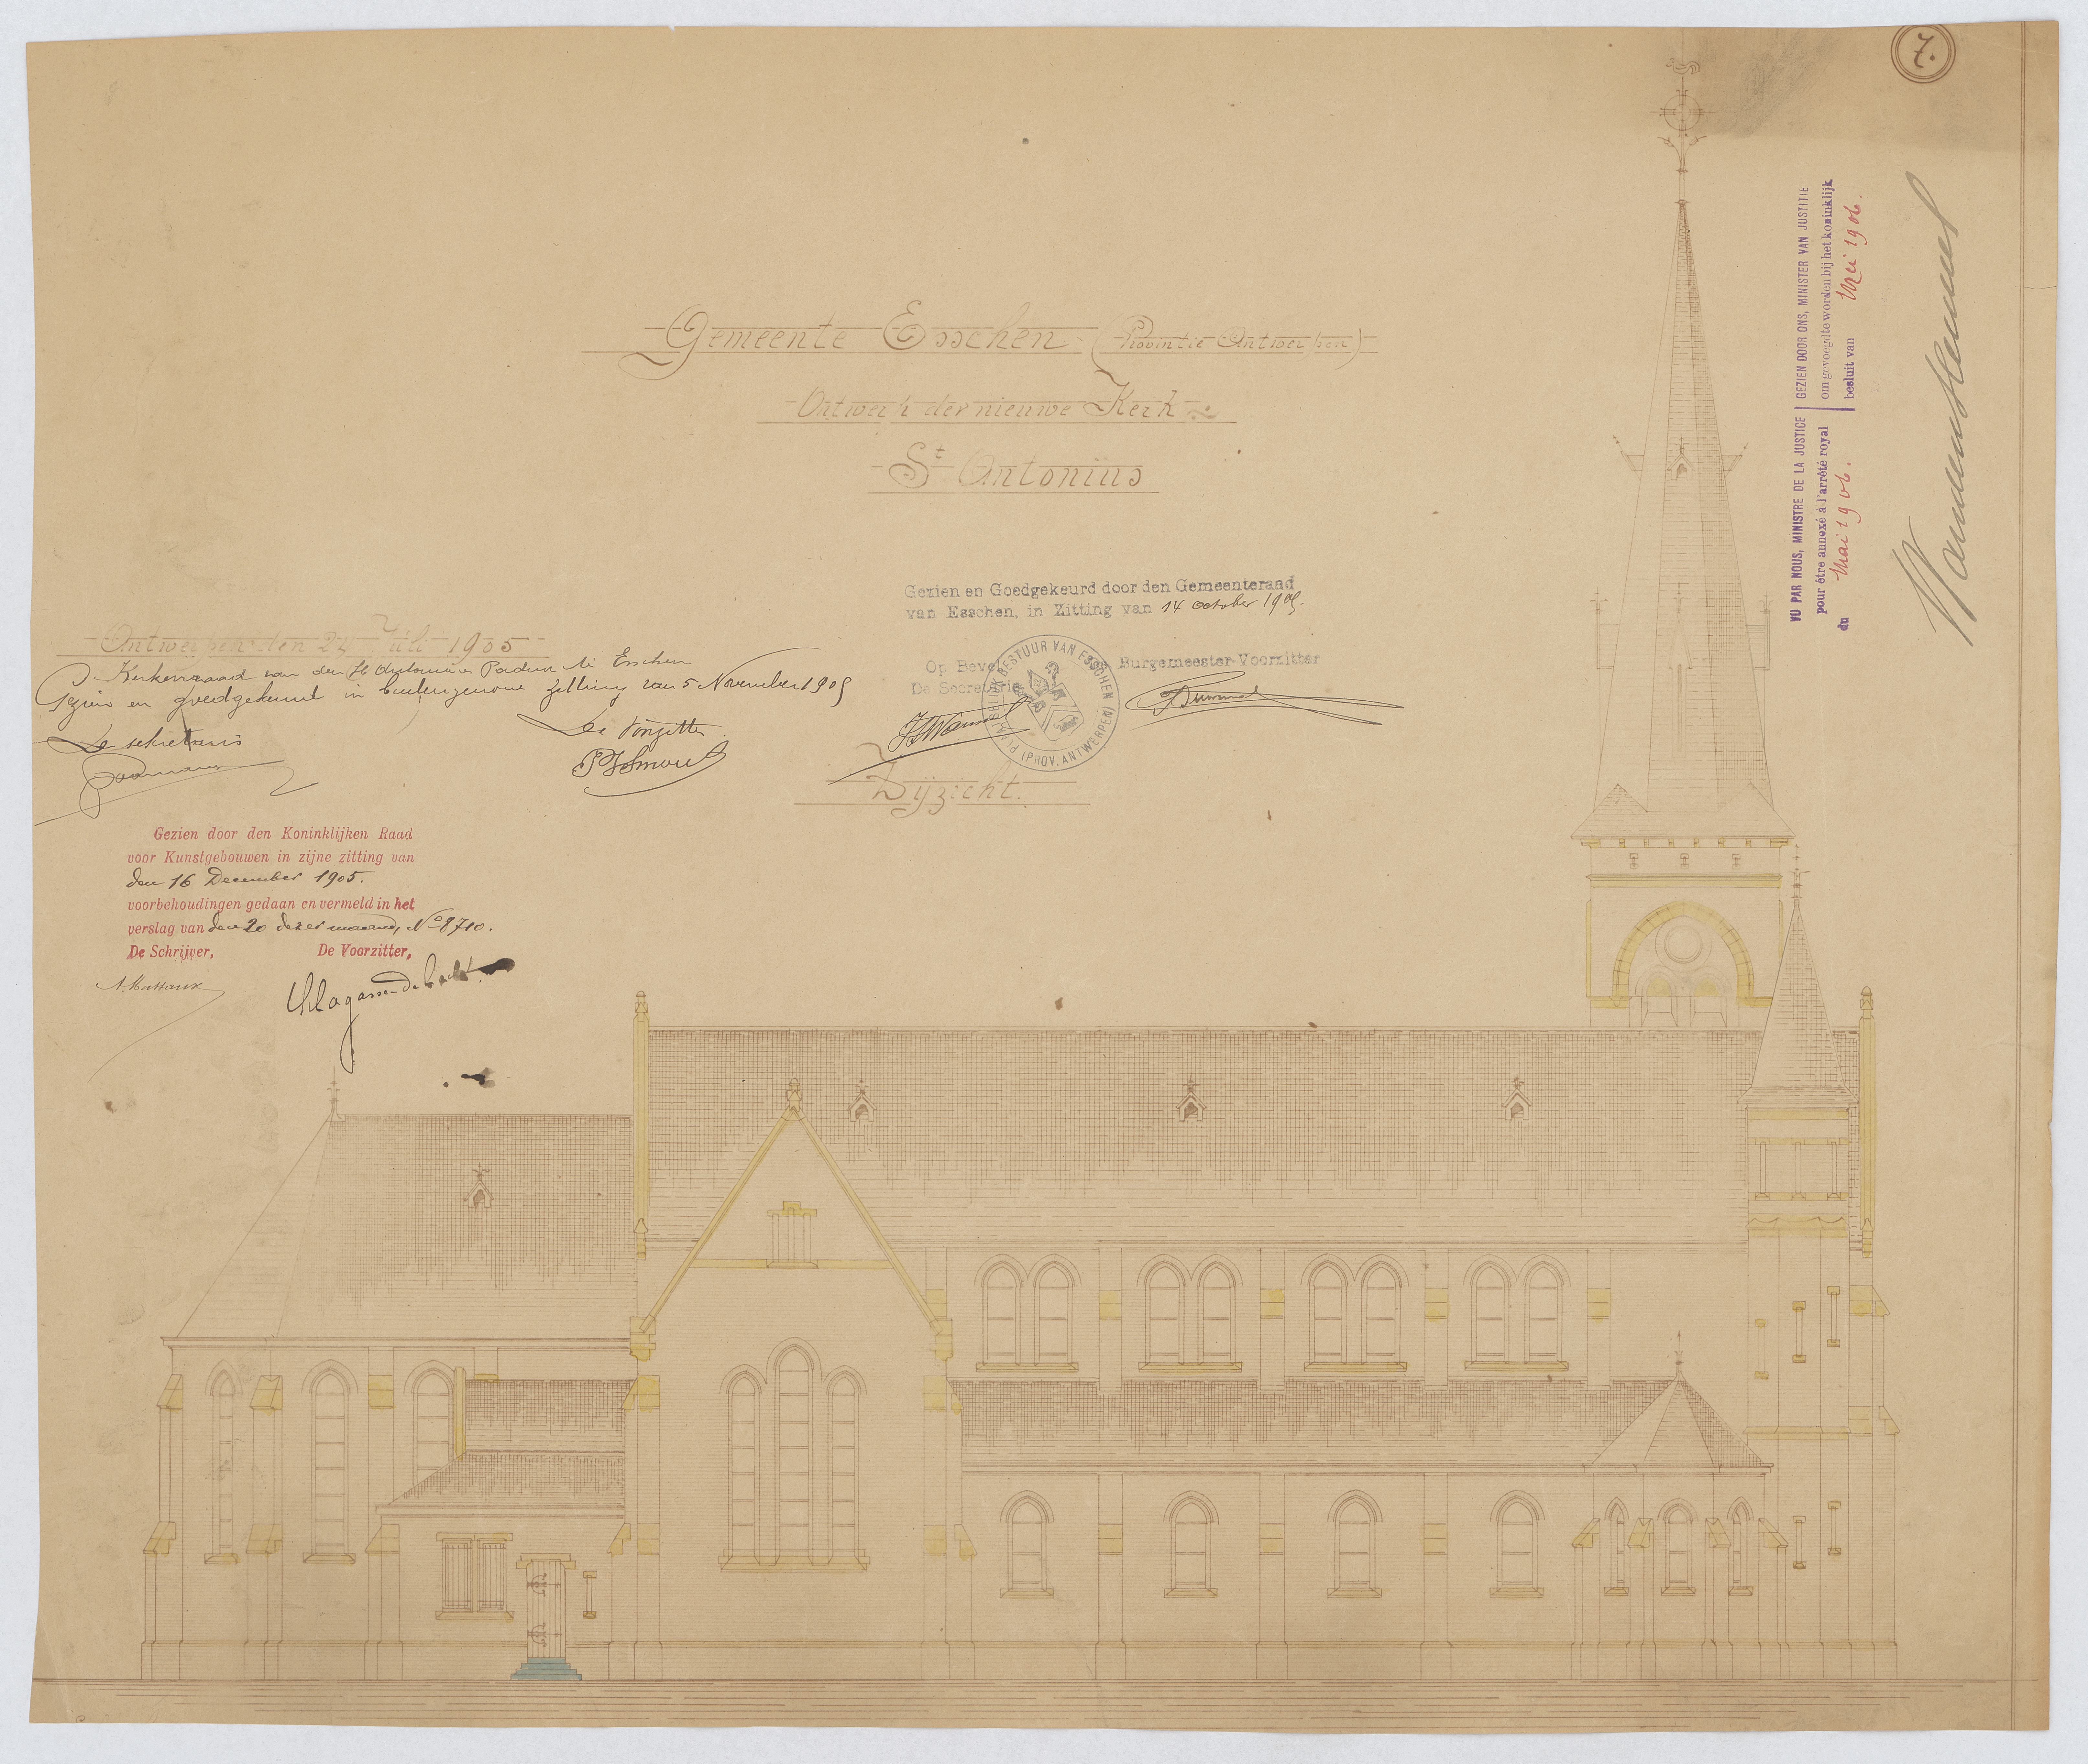 7.
Gemeente Esschen (Provintie Antwerpen)
Ontwerp der nieuwe Kerk
St Antonius
Gezien en Goedgekeurd door den Gemeenteraad
van Esschen, in Zitting van 14 october 1905.
Op Bevel Burgemeester-Voorzitter
De Secretaris
BESTUUR VAN ESSCHEN (PROV. ANTWERPEN) PLAATSELIJK
Zijzicht.
Antwerpen den 24 Juli 1905
Kerkenraad van den H Antonius van Esschen
Gezien en goedgekeurd in buitengewone zitting van 5 November 1905
De sekretaris
De Voorzitter
Gezien door den Koninklijken Raad
voor Kunstgebouwen in zijne zitting van
den 16 December 1905.
voorbehoudingen gedaan en vermeld in het
verslag van den 20 dezer maand, No 8710.
De Schrijver, De Voorzitter,
VU PAR NOUS, MINISTRE DE LA JUSTICE
pour être annexé à l'arrêté royal
du Mai 1906.
GEZIEN DOOR ONS, MINISTER VAN JUSTITIE
om gevoegd te worden bij het koninklijk
besluit van Mei 1906.